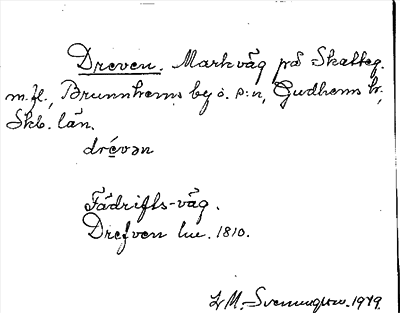 Dreven. Markväg på Skatteg.
m.fl., Brunnhems by o. s:n, Gudhems hd,
Skb. län.
drévən
Fädrifts-väg.
Drefven lm. 1810.
M. Svenungsson. 1979.